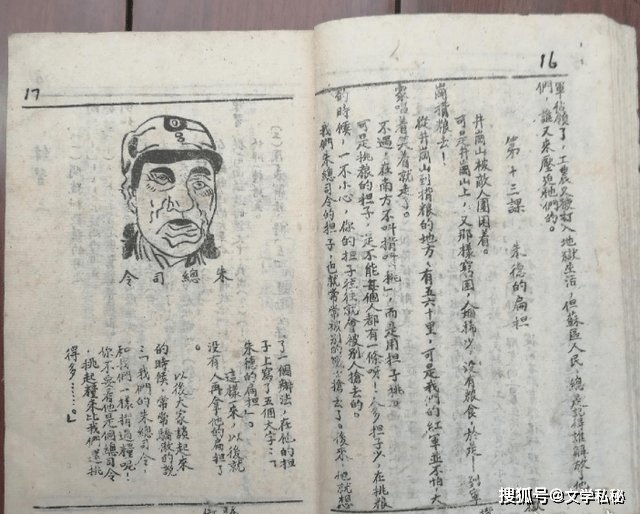 16
軍佔領了,工農又被打入地獄生活,但蘇區人民,總是記得誰解放他
們,誰又來壓迫他們的。
第十三課 朱德的扁担
井崗山被敵人圍困着。
可是井崗山上,又那樣窮困,人烟稀少,没有粮食,於是——到寧
崗揹粮去!
從井崗山到揹粮的地方,有五六十里,可是我們的紅軍並不怕,大
家唱着笑着就走了。
不過,在南方不叫揹叫「挑」,而是用担子挑。
可是挑粮的担子,是不能每個人都有一條呀!人多担子少,在挑粮
的時候,一不小心,你的担子往往就會被别人搶去的。
我們朱總司令的担子,也就常常被别的搶去了。後來,他就想
17
朱總司令
了一個辦法,在他的担
子上寫了五個大字:「
朱德的扁担」。
這樣一來,以後就
没有人再拿他的扁担了
。
以後大家談起來
的時候,常常驕傲的說
:「我們的朱總司令,
和我們一樣揹過糧呢!
你不要看他是個總司令
,挑起糧來比我們還挑
得多……。」
搜狐号@文学私秘